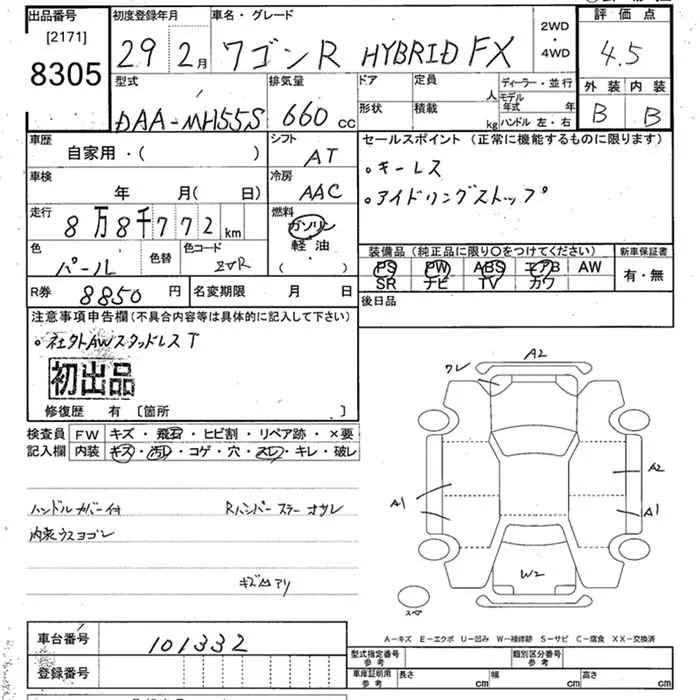 出品番号 初度登録年月 車名・グレード 2WD ・ 4WD 評価点
[2171]
8305 29 2月 ワゴンR HYBRID FX 4.5
型式 排気量 ドア 定員 人 ディーラー・並行 外装 内装
モデル年式 年
DAA-MH55S 660 cc 形状 積載 kg ハンドル 左・右 B B
車歴 シフト セールスポイント (正常に機能するものに限ります)
自家用・( ) AT 。キーレス
車検 冷房
年 月(日) AAC 。アイドリングストップ
走行 燃料
8万8千772km ガソリン
軽油
( ・ )
色 色替 色コード 装備品(純正品に限り〇をつけてください) 新車保証書
パール ZVR PS PW ABS エアB AW 有・無
SR ナビ TV カワ
R券 8850円 名変期限 月 日 後日品
注意事項申告欄(不具合内容等は具体的に記入して下さい)
。社外AWスタッドレスT
初出品
修復歴 有 [箇所 ]
ワレ A2
検査員 FW キズ・飛石・ヒビ割・リペア跡・×要
記入欄 内装 キズ・汚レ・コゲ・穴・スレ・キレ・破レ
A2
A1 A1
ハンドルカバー付 Rバンパーステーオサレ
内装ウスヨゴレ
W2
キズ凹アリ
スペア
A-キズ E-エクボ U-凹み W-補修跡 S-サビ C-腐食 XX-交換済
車台番号 101332
型式指定番号 参考 類別区分番号 参考
登録番号 車庫証明用 参考 長さ cm 幅 cm 高さ cm